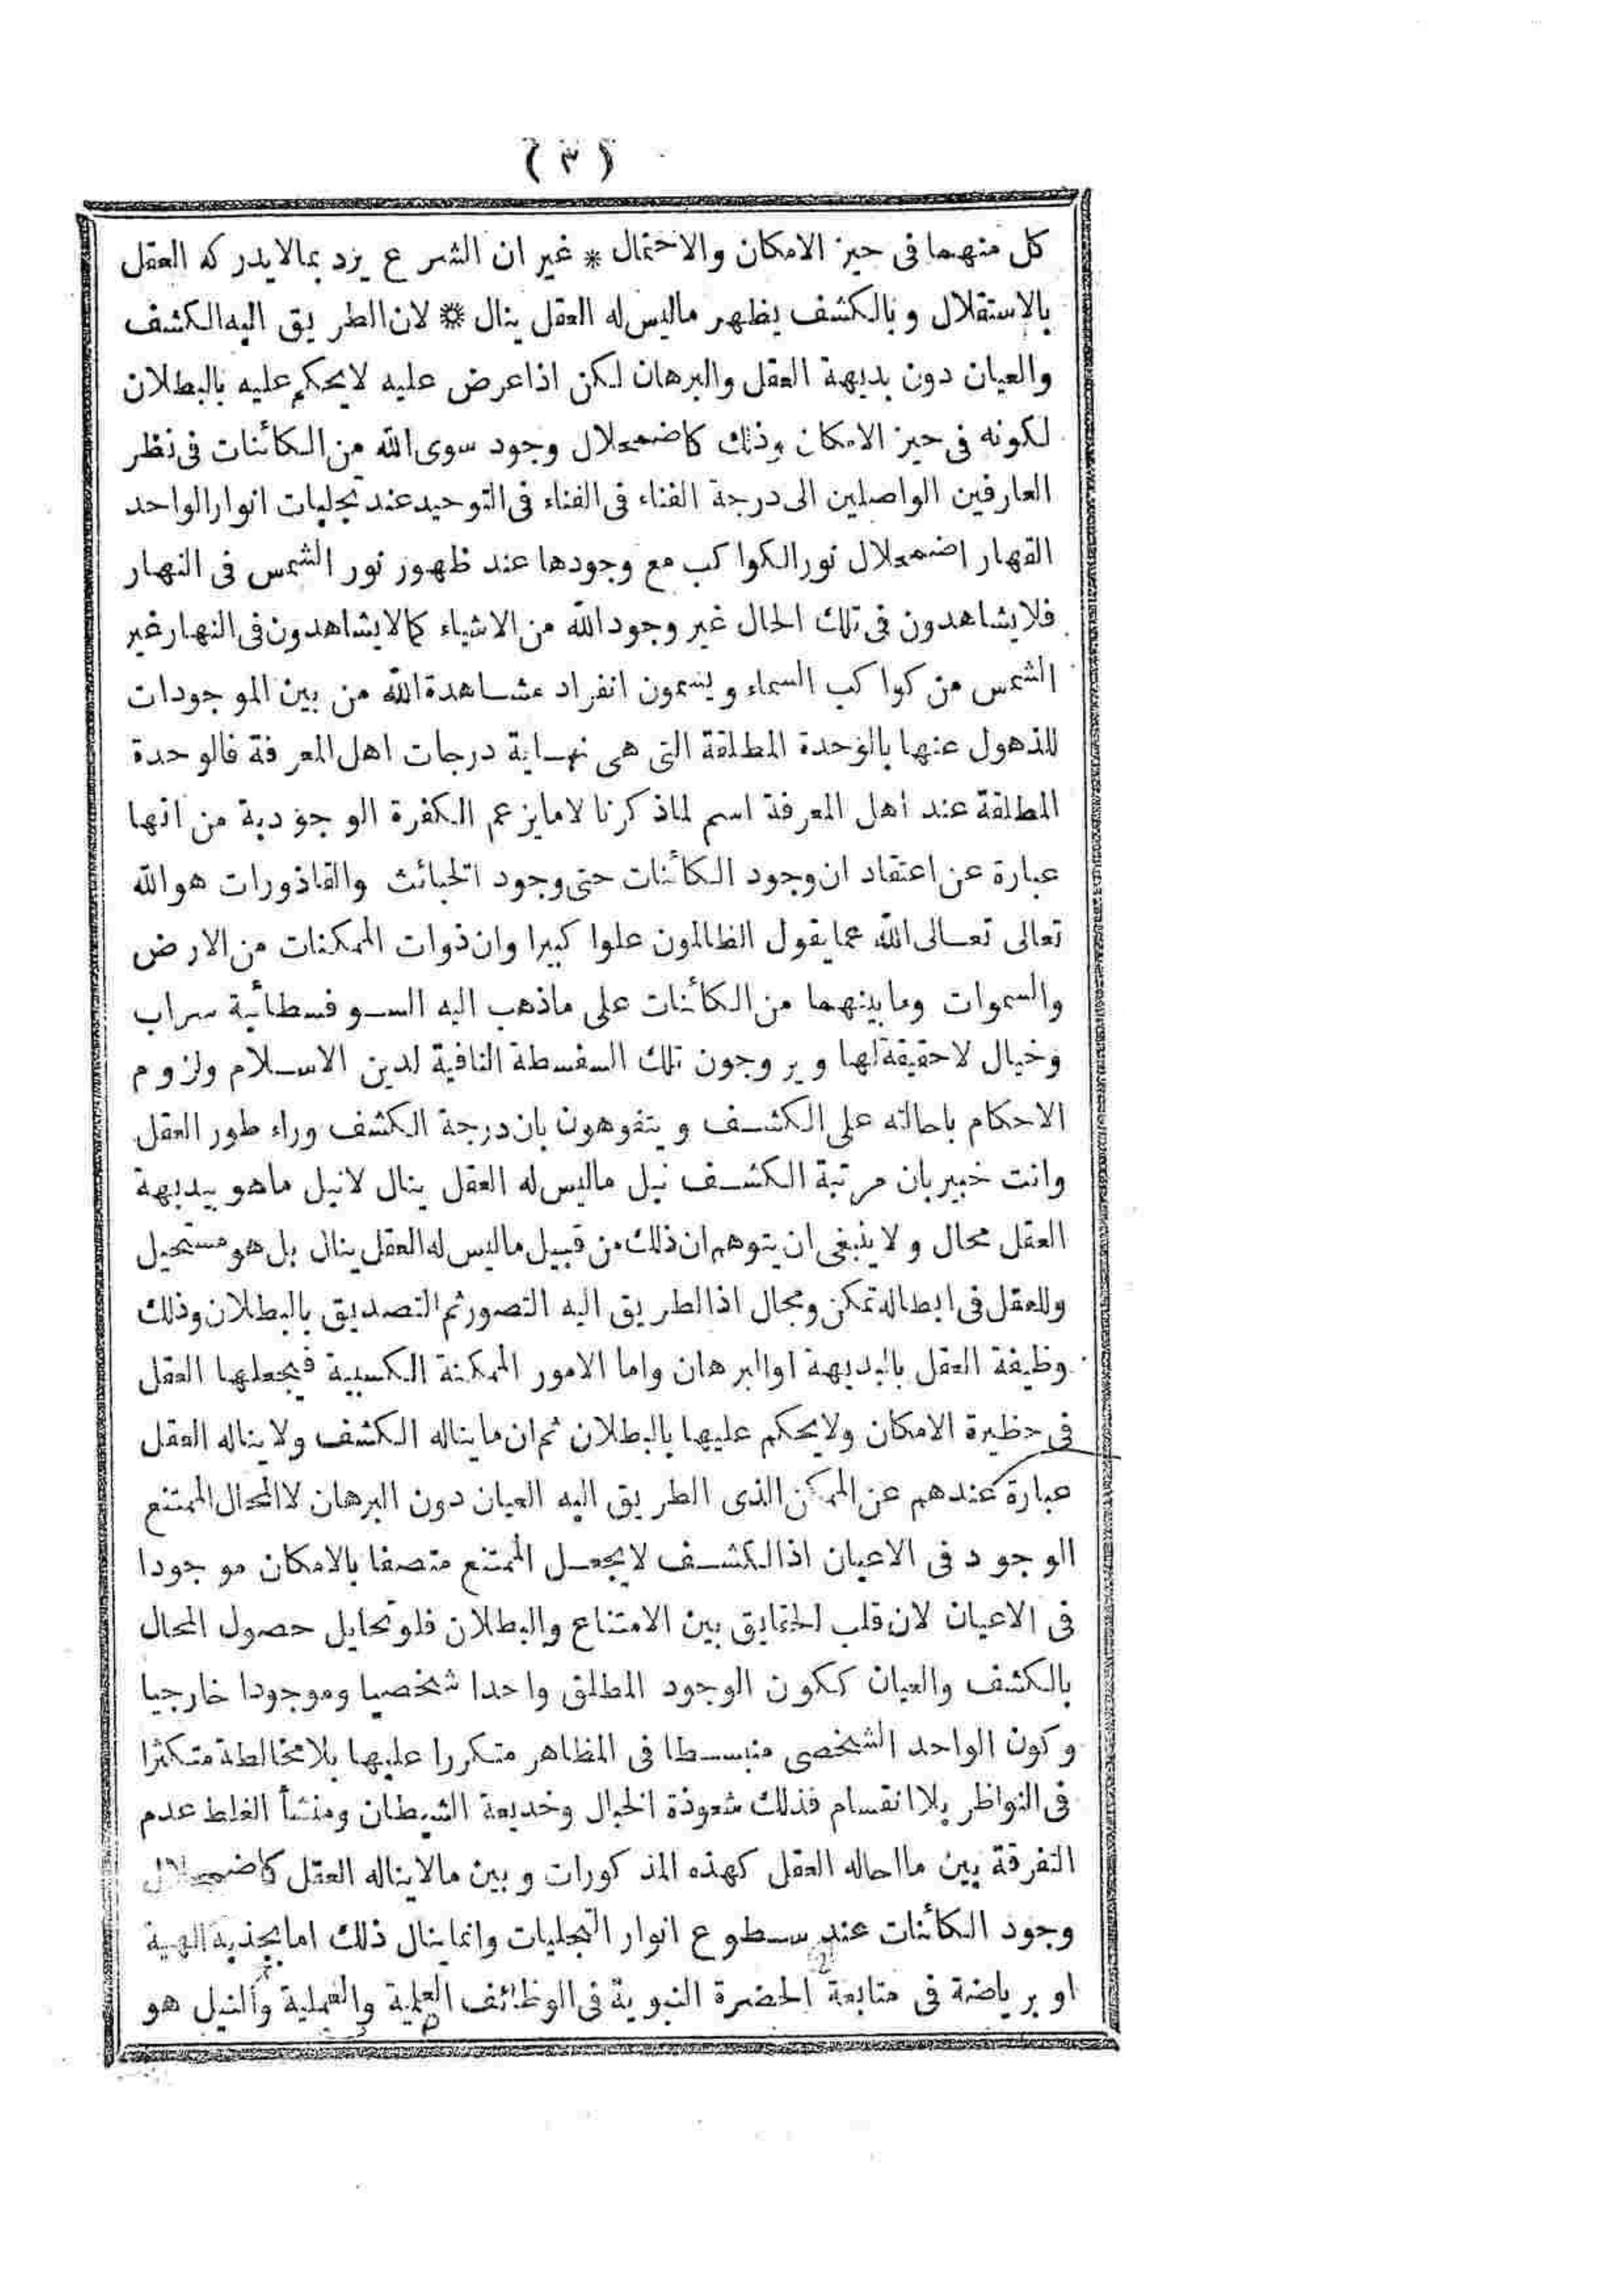 ( ٣ )
كل منهما فى حيز الامكان والاحتمال * غير ان الشرع يرد بمالايدركه العقل
بالاستقلال وبالكشف يظهر ماليس له العقل ينال * لان الطريق اليه الكشف
والعيان دون بديهة العقل والبرهان لكن اذا عرض عليه لايحكم عليه بالبطلان
لكونه فى حيز الامكان وذلك كاضمحلال وجود سوى الله من الكائنات فى نظر
العارفين الواصلين الى درجة الفناء فى الفناء فى التوحيد عند تجليات انوار الواحد
القهار اضمحلال نور الكواكب مع وجودها عند ظهور نور الشمس فى النهار
فلايشاهدون فى تلك الحال غير وجود الله من الاشياء كما لايشاهدون فى النهار غير
الشمس من كواكب السماء ويسمون انفراد مشاهدة الله من بين الموجودات
للذهول عنها بالوحدة المطلقة التى هى نهاية درجات اهل المعرفة فالوحدة
المطلقة عند اهل المعرفة اسم لماذكرنا لامايزعم الكفرة الوجودية من انها
عبارة عن اعتقاد ان وجود الكائنات حتى وجود الخبائث والقاذورات هو الله
تعالى تعالى الله عما يقول الظالمون علوا كبيرا وان ذوات الممكنات من الارض
والسموات ومابينهما من الكائنات على ماذهب اليه السوفسطائية سراب
وخيال لاحقيقة لها ويروجون تلك السفسطة النافية لدين الاسلام ولزوم
الاحكام باحالته على الكشف ويتفوهون بان درجة الكشف وراء طور العقل
وانت خبير بان مرتبة الكشف نيل ماليس له العقل ينال لانيل ماهو ببديهة
العقل محال ولاينبغى ان يتوهم ان ذلك من قبيل ماليس له العقل ينال بل هو مستحيل
وللعقل فى ابطاله تمكن ومجال اذالطريق اليه التصور ثم التصديق بالبطلان وذلك
وظيفة العقل بالبديهة اوالبرهان واما الامور الممكنة الكسبية فيجعلها العقل
فى حظيرة الامكان ولايحكم عليها بالبطلان ثم ان ما يناله الكشف ولايناله العقل
عبارة عندهم عن الممكن الذى الطريق اليه العيان دون البرهان لاالمحال الممتنع
الوجود فى الاعيان اذالكشف لايجعل الممتنع متصفا بالامكان موجودا
فى الاعيان لان قلب الحقايق بين الامتناع والبطلان فلوتخايل حصول المحال
بالكشف والعيان ككون الوجود المطلق واحدا شخصيا وموجودا خارجيا
وكون الواحد الشخصى منبسطا فى المظاهر متكررا عليها بلامخالطة متكثرا
فى النواظر بلاانقسام فذلك شعوذة الخيال وخديعة الشيطان ومنشأ الغلط عدم
التفرقة بين مااحاله العقل كهذه المذكورات وبين مالايناله العقل كاضمحلال
وجود الكائنات عند سطوع انوار التجليات وانماينال ذلك امابجذبة الهية
او برياضة فى متابعة الحضرة النبوية فى الوظائف العلمية والعملية والنيل هو